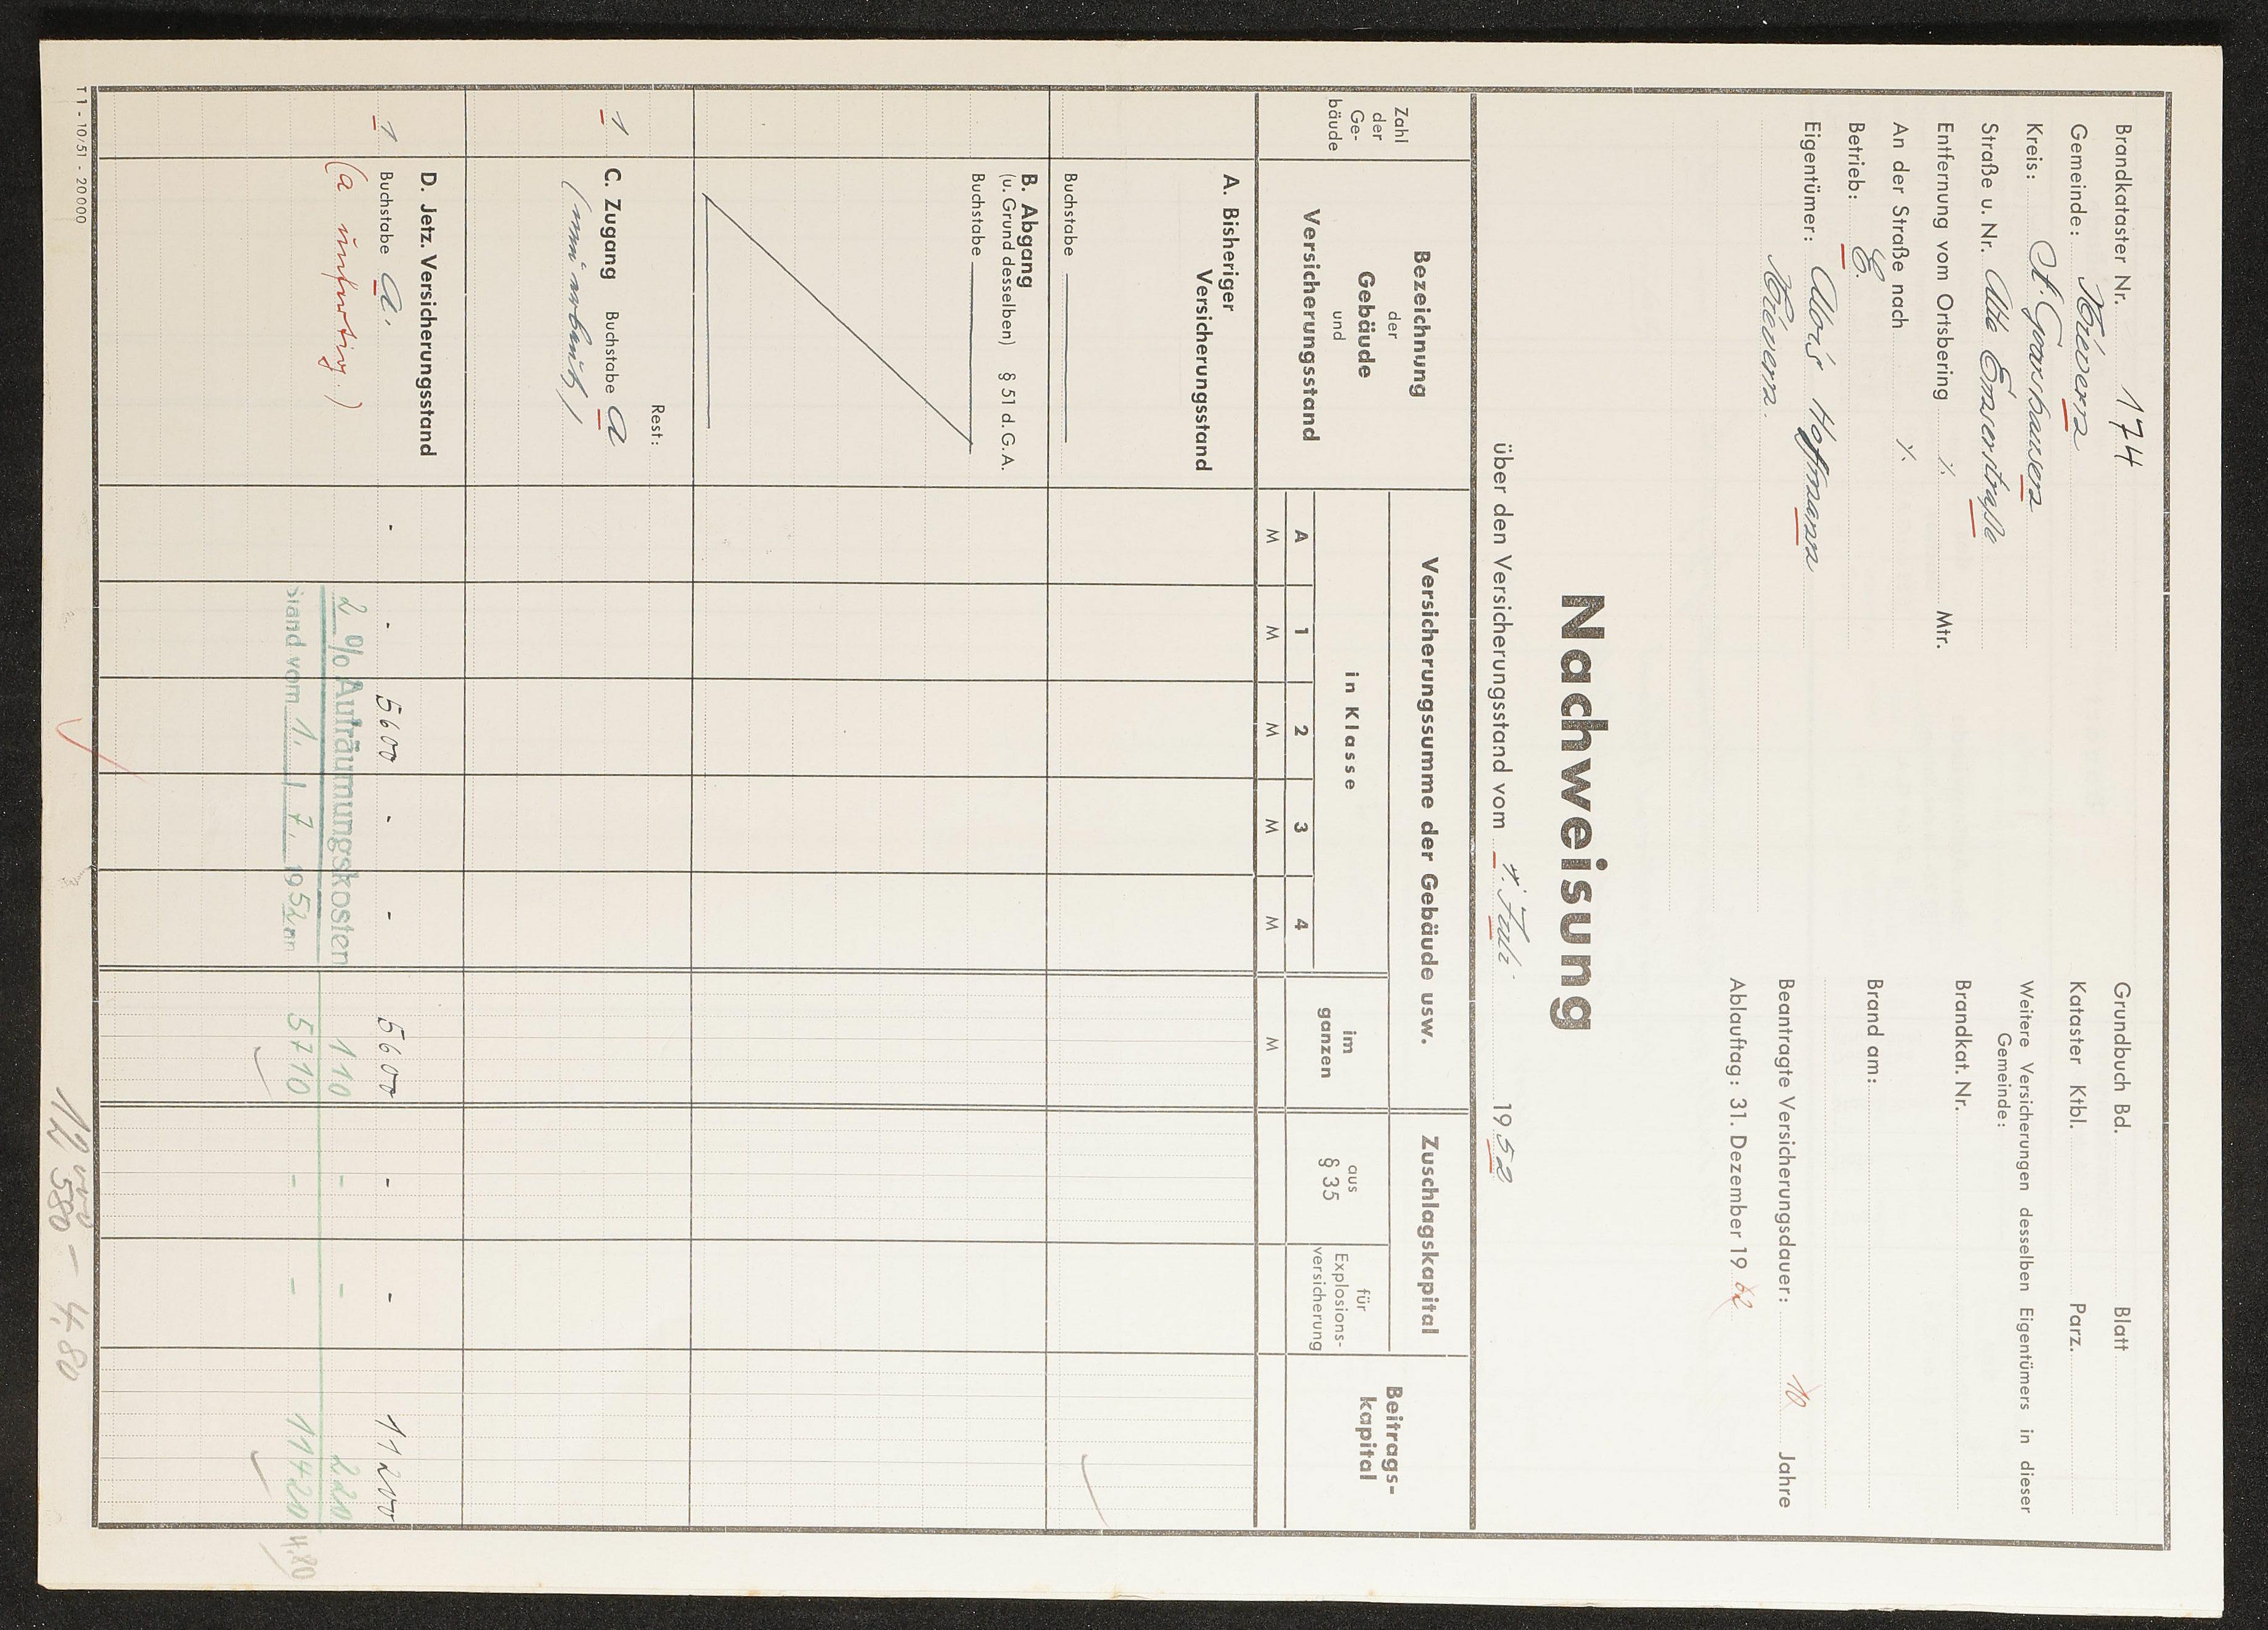 Brandkataster Nr. 174
Gemeinde: Kievern
Kreis: St. Goarshausen
Straße u. Nr. Alte Emserstraße
Entfernung vom Ortsbering ./. Mtr.
An der Straße nach ./.
Betrieb: E.
Eigentümer: Alois Hoffmann
Kievern.
Grundbuch Bd. Blatt
Kataster Ktbl. Parz.
Weitere Versicherungen desselben Eigentümers in dieser
Gemeinde:
Brandkat. Nr.
Brand am:
Beantragte Versicherungsdauer: 10 Jahre
Ablauftag: 31. Dezember 19 62
Nachweisung
über den Versicherungsstand vom 1. Juli 1952
Zahl
der
Ge-
bäude
Bezeichnung
der
Gebäude
und
Versicherungsstand
Versicherungssumme der Gebäude usw.
in Klasse
A 1 2 3 4
im
ganzen
M M M M M M
Zuschlagskapital
aus
§ 35
für
Explosions-
versicherung
Beitrags-
kapital
A. Bisheriger
Versicherungsstand
Buchstabe
B. Abgang
(u. Grund desselben) § 51 d. G.A.
Buchstabe
Rest:
1 C. Zugang Buchstabe a
D. Jetz. Versicherungsstand
1 Buchstabe a. - - 5600 - - 5600 - - 11200
2 % Aufräumungskosten 110 - - 220
Stand vom 1. / 7. 1952 an 5710 - - 11420 4,80
T 1 - 10/51 - 20000
580 - 4,80